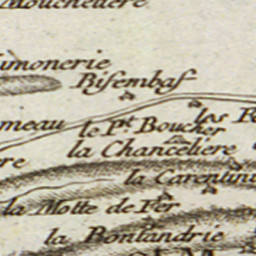 Moucheliere
imonerie
Bisembas
meau
le Pt. Boucher
les F
re
la Chanceliere
la Carentini
la Motte de Fer
la Bontandrie